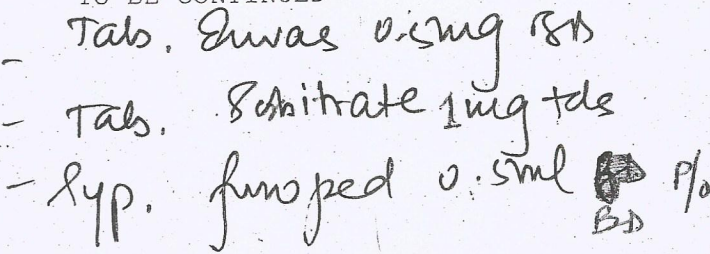 TO BE CONTINUED
- Tab. Envas 0.5mg BD
- Tab. Sorbitrate 1mg tds
- Syp. furoped 0.5ml BD P/o